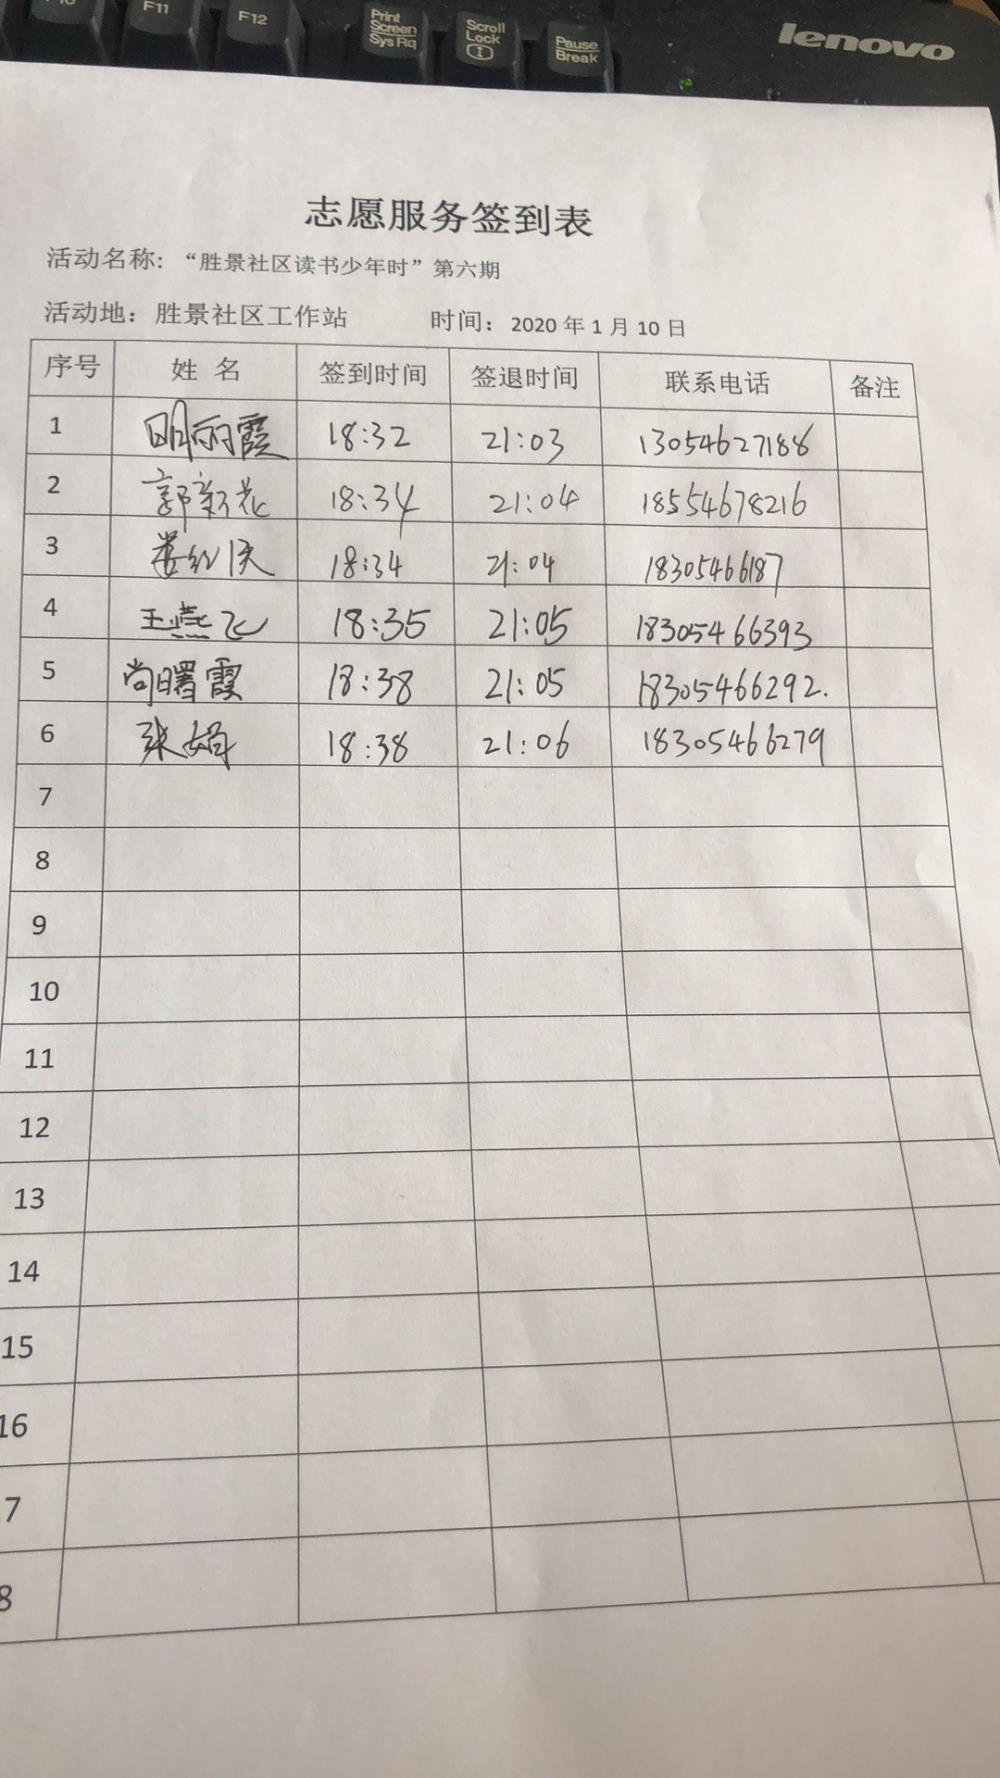 F10 F11 F12 Print Screen Sys Rq Scroll Lock Pause Break lenovo
志愿服务签到表
活动名称：“胜景社区读书少年时”第六期
活动地：胜景社区工作站 时间：2020 年 1 月 10 日
序号 姓 名 签到时间 签退时间 联系电话 备注
1 明丽霞 18:32 21:03 13054627188
2 郭新花 18:34 21:04 18554678216
3 18:34 21:04 18305466187
4 王燕飞 18:35 21:05 18305466393
5 尚曙霞 18:38 21:05 18305466292.
6 张娟 18:38 21:06 18305466279
7
8
9
10
11
12
13
14
15
16
7
8